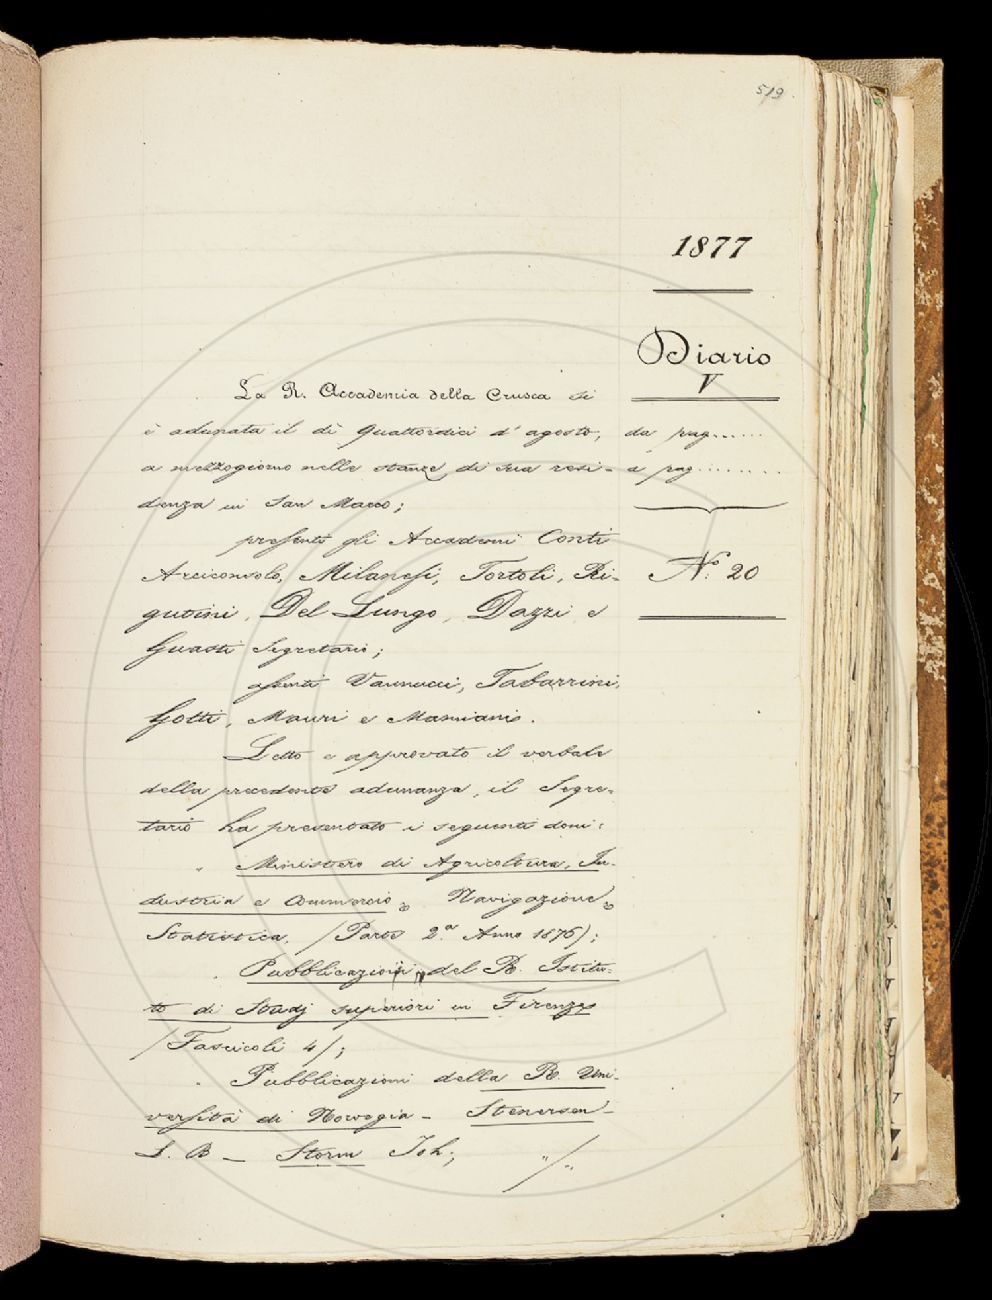 519.
1877
Diario
V
da pag......
a pag.........
N.° 20
La R. Accademia della Crusca si
è adunata il dì quattordici d'agosto,
a mezzogiorno nelle stanze di sua resi-
denza in San Marco;
presenti gli Accademici Conti
Arciconsolo, Milanesi, Tortoli, Ri-
gutini, Del Lungo, Dazzi e
Guasti Segretario;
assenti Vannucci, Tabarrini,
Gotti, Mauri e Mamiani.
Letto e approvato il verbale
della precedente adunanza, il Segre-
tario ha presentato i seguenti doni:
Ministero di Agricoltura, In-
dustria e Commercio, Navigazione,
Statistica. (Parte 2.a Anno 1876);
Pubblicazioni del R. Istitu-
to di Studj superiori in Firenze
(Fascicoli 4);
Pubblicazioni della R. Uni-
versità di Norvegia - Stenersen
L. B - Storm Joh;